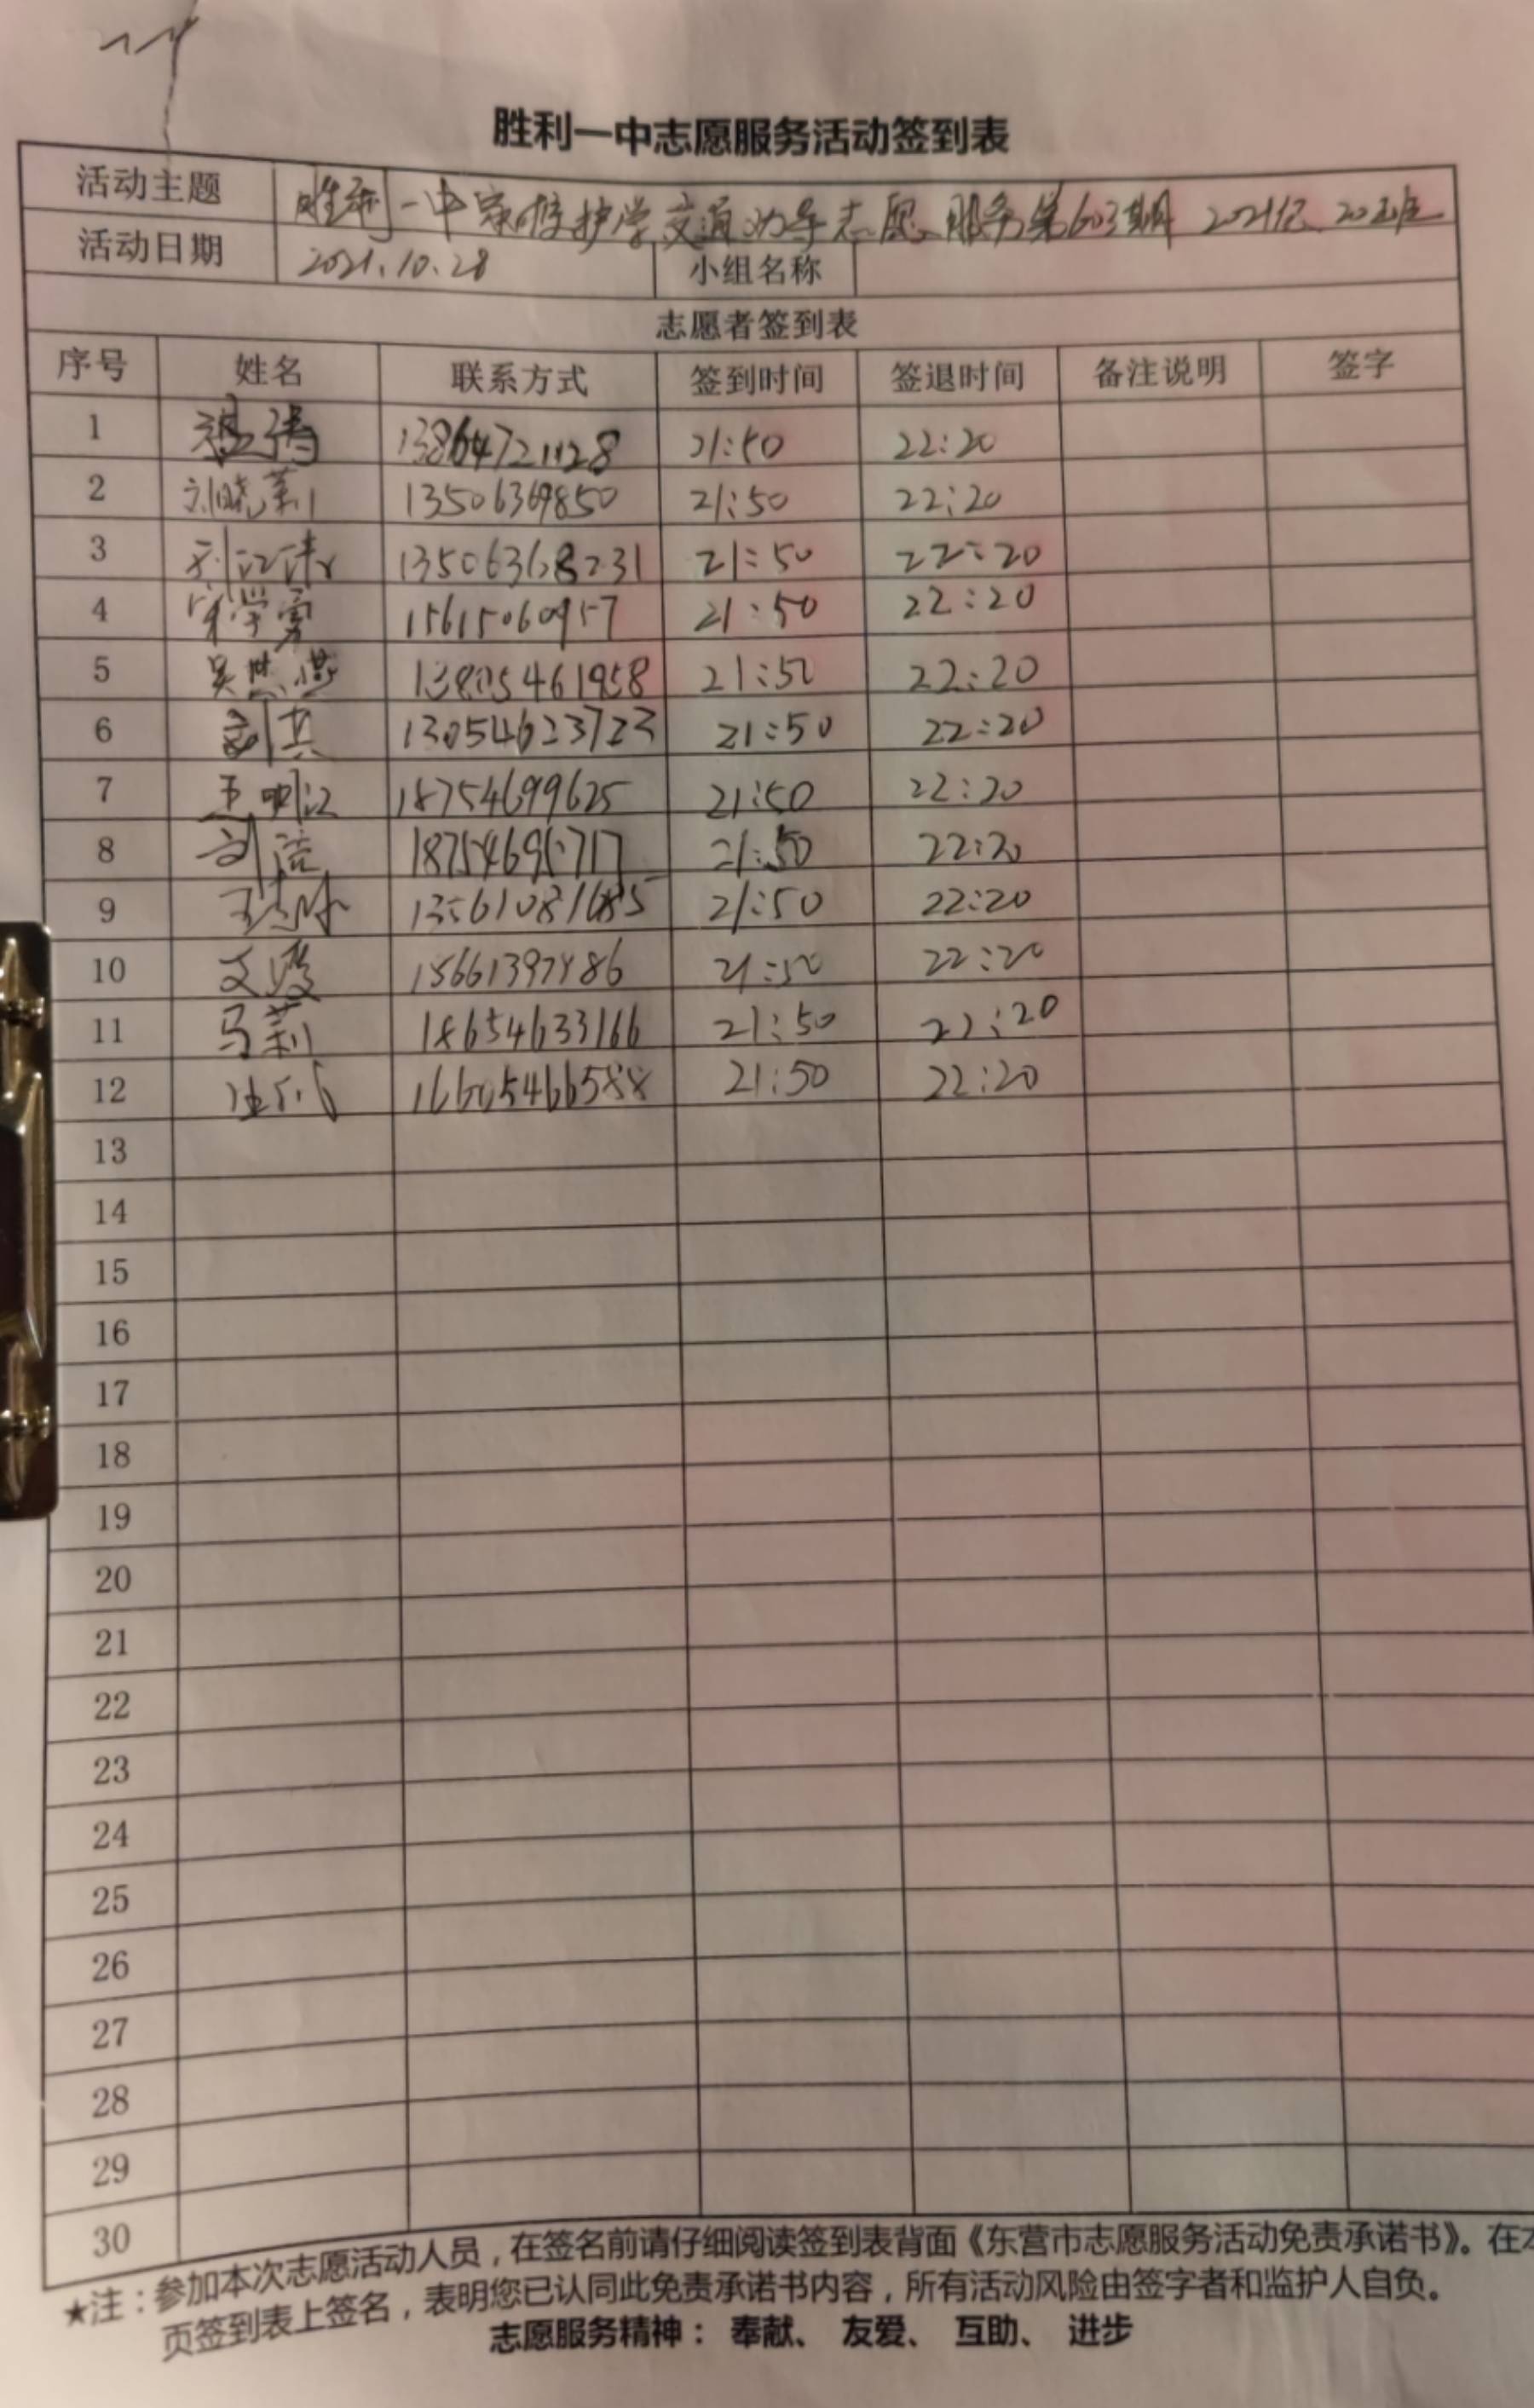 胜利一中志愿服务活动签到表
活动主题 胜利一中家校护学交通劝导志愿服务第603期 2021级20班
活动日期 2021.10.28 小组名称
志愿者签到表
序号 姓名 联系方式 签到时间 签退时间 备注说明 签字
1 13864721128 21:50 22:20
2 刘晓莉 13506369850 21:50 22:20
3 刘江涛 13506368231 21:50 22:20
4 宋学勇 15615060957 21:50 22:20
5 吴燕燕 13805461958 21:50 22:20
6 刘其 13054623723 21:50 22:20
7 王明江 18754699625 21:50 22:20
8 21:50 22:20
9 21:50 22:20
10 21:50 22:20
11 马莉 18654633166 21:50 22:20
12 16605466588 21:50 22:20
13
14
15
16
17
18
19
20
21
22
23
24
25
26
27
28
29
30
★注：参加本次志愿活动人员，在签名前请仔细阅读签到表背面《东营市志愿服务活动免责承诺书》。在本
页签到表上签名，表明您已认同此免责承诺书内容，所有活动风险由签字者和监护人自负。
志愿服务精神： 奉献、 友爱、 互助、 进步